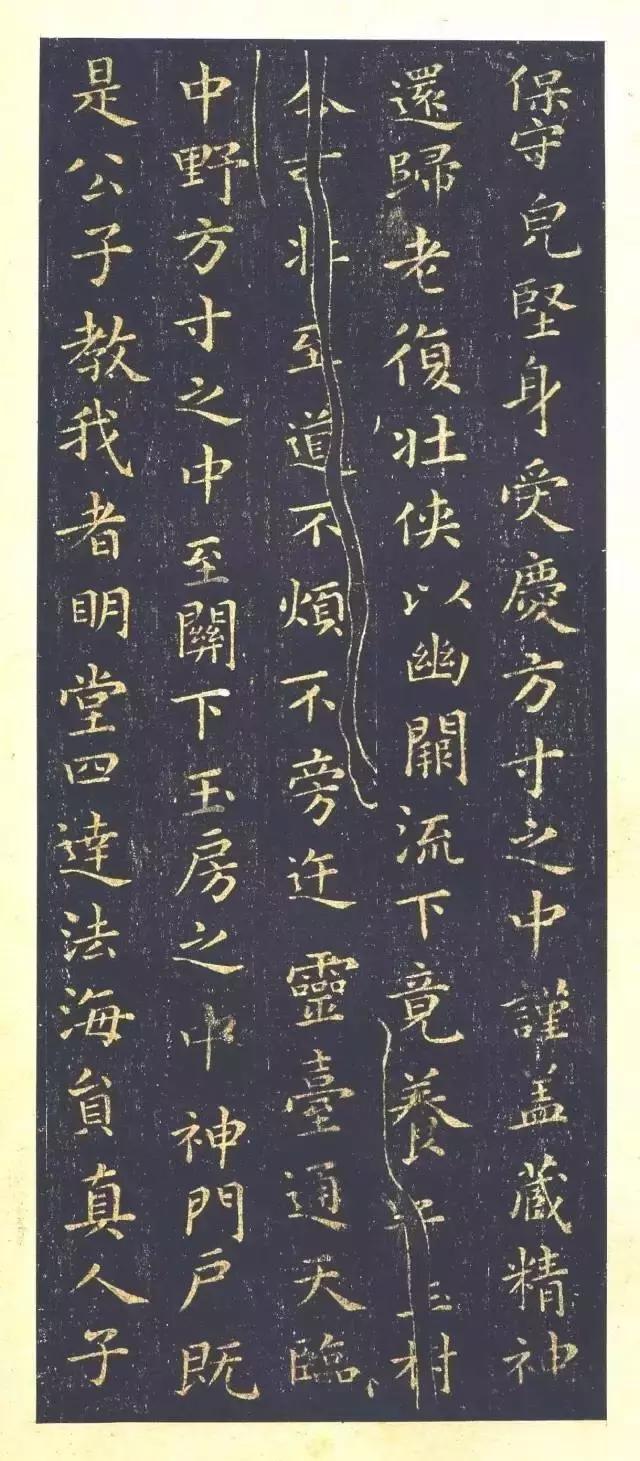 保守皃堅身受慶方寸之中謹盖藏精神
還歸老復壯侠以幽闕流下竟養玉村
不至道不煩不旁迕靈臺通天臨
中野方寸之中至關下玉房之中神門户既
是公子教我者明堂四達法海員真人子